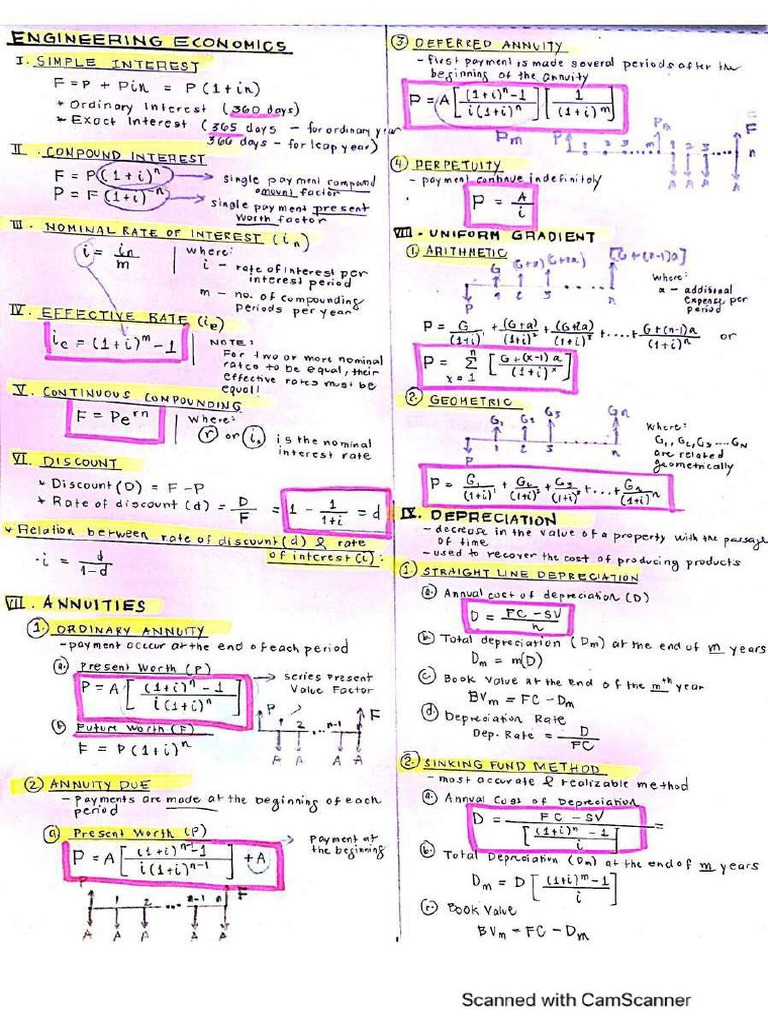 ENGINEERING ECONOMICS
I. SIMPLE INTEREST
F = P + Pin = P (1 + in)
* Ordinary Interest (360 days)
* Exact Interest (365 days - for ordinary year
366 days - for leap year)
II. COMPOUND INTEREST
F = P(1+i)^n → single payment compound amount factor
P = F(1+i)^-n → single payment present worth factor
III. NOMINAL RATE OF INTEREST (in)
i = in/m
where:
i - rate of interest per
interest period
m - no. of compounding
periods per year
IV. EFFECTIVE RATE (ie)
ie = (1+i)^m - 1
NOTE:
For two or more nominal
rates to be equal, their
effective rates must be
equal!
V. CONTINUOUS COMPOUNDING
F = Pe^rn
where:
r or in is the nominal
interest rate
VI. DISCOUNT
* Discount (D) = F - P
* Rate of discount (d) = D/F = 1 - 1/(1+i) = d
* Relation between rate of discount (d) & rate
of interest (i):
· i = d/(1-d)
VII. ANNUITIES
1. ORDINARY ANNUITY
- payment occur at the end of each period
a. Present Worth (P)
P = A [ ((1+i)^n - 1) / (i(1+i)^n) ] → series Present
Value Factor
b. Future Worth (F)
F = P(1+i)^n
P 1 2 ... n-1 n F
A A A A
2. ANNUITY DUE
- payments are made at the beginning of each
period
a. Present Worth (P)
P = A [ ((1+i)^n-1 - 1) / (i(1+i)^n-1) ] + A → payment at
the beginning
P 1 2 ... n-1 n F
A A A A A
3. DEFERRED ANNUITY
- first payment is made several periods after the
beginning of the annuity
P = A [ ((1+i)^n - 1) / (i(1+i)^n) ] [ 1 / (1+i)^m ]
Pm
P 1 2 3 ..... m 1 2 3 ... n F
Pm
A A A A
4. PERPETUITY
- payment continue indefinitely
P = A/i
VIII. UNIFORM GRADIENT
1. ARITHMETIC
G (G+a) (G+2a) [G+(n-1)a]
P 1 2 3 ..... n
where:
a - additional
expense per
period
P = G/(1+i)^1 + (G+a)/(1+i)^2 + (G+2a)/(1+i)^3 + .... + (G+(n-1)a)/(1+i)^n or
P = Σ n x=1 [ (G+(x-1)a) / (1+i)^x ]
2. GEOMETRIC
G1 G2 G3 Gn
P 1 2 3 ..... n
Where:
G1, G2, G3 .... GN
are related
geometrically
P = G1/(1+i)^1 + G2/(1+i)^2 + G3/(1+i)^3 + ... + Gn/(1+i)^n
IX. DEPRECIATION
- decrease in the value of a property with the passage
of time
- used to recover the cost of producing products
1. STRAIGHT LINE DEPRECIATION
a. Annual cost of depreciation (D)
D = (FC - SV)/n
b. Total depreciation (Dm) at the end of m years
Dm = m(D)
c. Book Value at the end of the mth year
BVm = FC - Dm
d. Depreciation Rate
Dep. Rate = D/FC
2. SINKING FUND METHOD
- most accurate & realizable method
a. Annual Cost of Depreciation
D = (FC - SV) / [ ((1+i)^n - 1) / i ] =
b. Total Depreciation (Dm) at the end of m years
Dm = D [ ((1+i)^m - 1) / i ]
c. Book Value
BVm = FC - Dm
Scanned with CamScanner